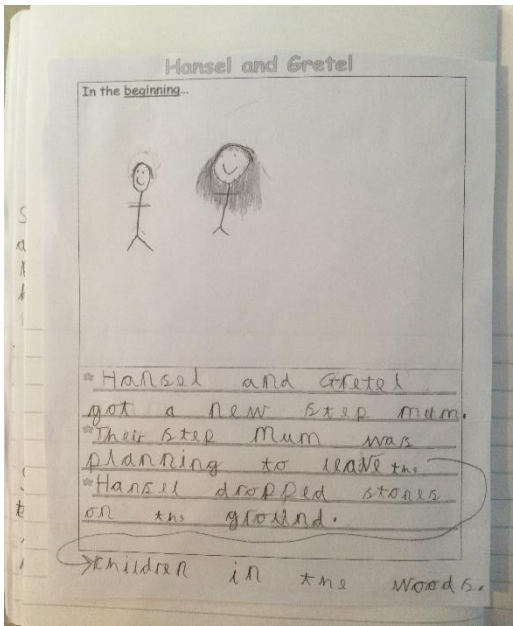 Hansel and Gretel
In the beginning...
* Hansel and Gretel
got a new step mum.
* Their step mum was
planning to leave the
* Hansel dropped stones
on the ground.
children in the woods.